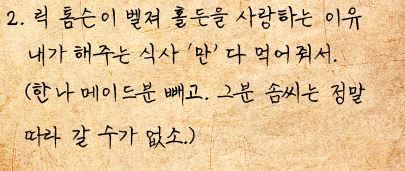 2. 릭 톰슨이 벨져 홀든을 사랑하는 이유
내가 해주는 식사 '만' 다 먹어줘서.
(한나 메이드분 빼고. 그분 솜씨는 정말
따라 갈 수가 없소.)